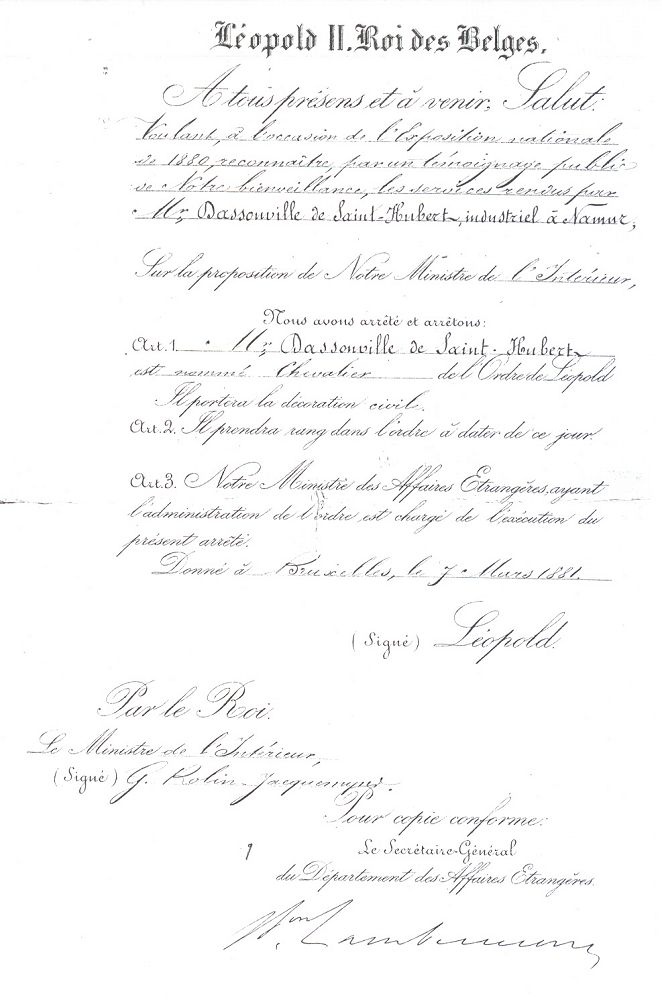 Léopold II. Roi des Belges.
A tous présens et à venir, Salut:
Voulant, à l'occasion de l'Exposition nationale
de 1880, reconnaître, par un témoignage public
de Notre bienveillance, les services rendus par
Mr. Dassonville de Saint-Hubert, industriel à Namur,
Sur la proposition de Notre Ministre de l'Intérieur,
Nous avons arrêté et arrêtons:
Art. 1. Mr. Dassonville de Saint-Hubert
est nommé Chevalier de l'Ordre de Léopold
Il portera la décoration civile.
Art. 2. Il prendra rang dans l'ordre à dater de ce jour.
Art. 3. Notre Ministre des Affaires Etrangères, ayant
l'administration de l'ordre est chargé de l'exécution du
présent arrêté.
Donné à Bruxelles, le 7 Mars 1881.
(Signé) Léopold.
Par le Roi.
Le Ministre de l'Intérieur,
(Signé) G. Rolin-Jaequemyns.
Pour copie conforme:
Le Secrétaire-Général
du Département des Affaires Etrangères.
Bon Lambermont